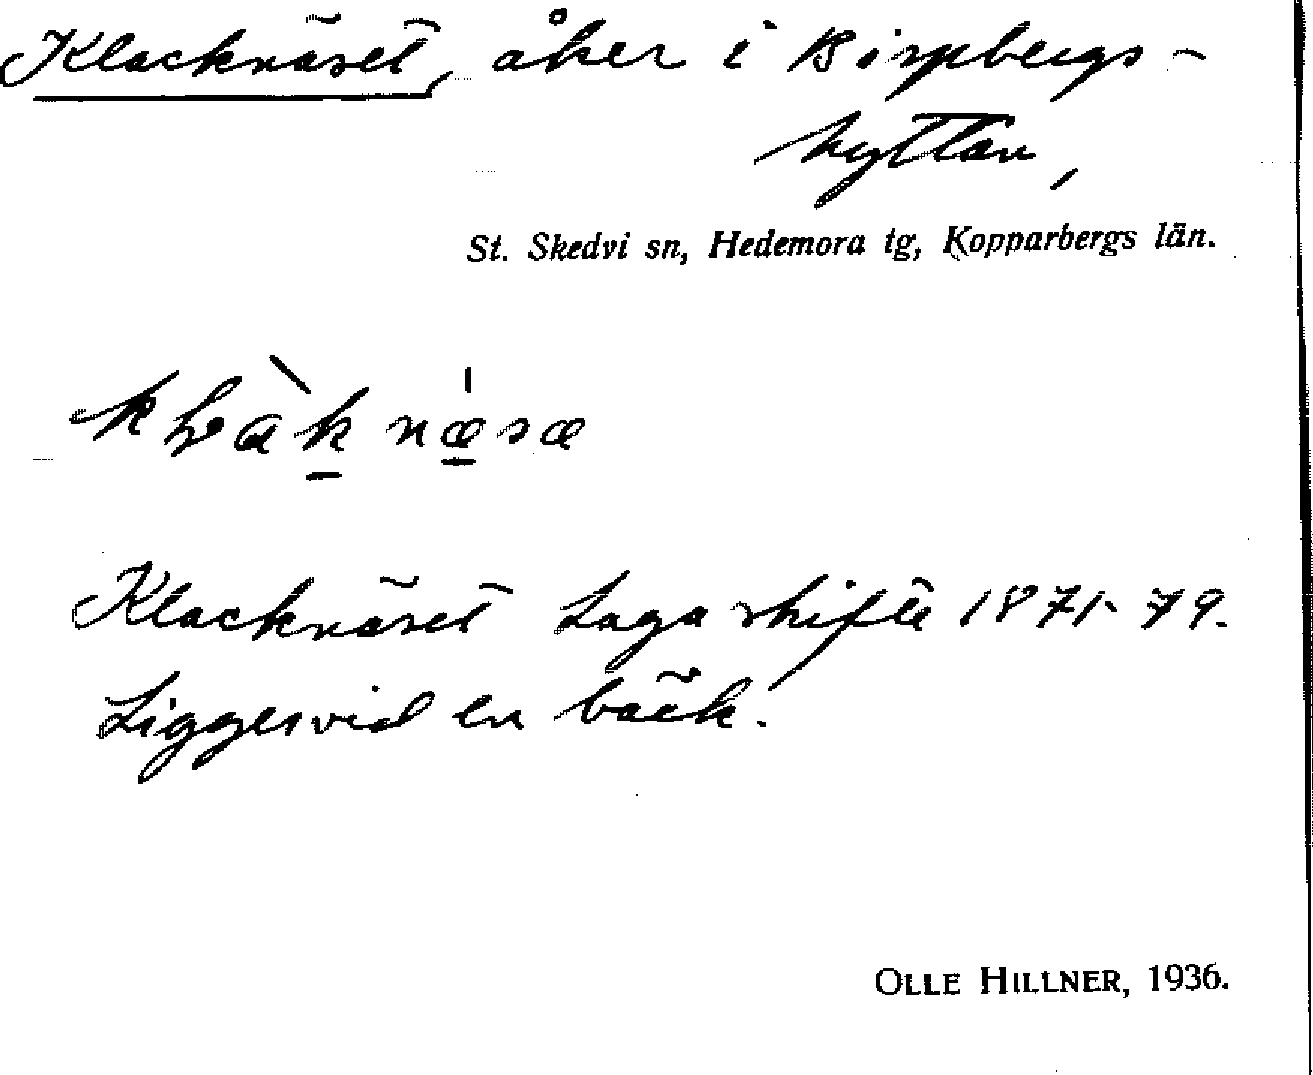 Klacknäset, åker i Bispbergs-
hyttan,
St. Skedvi sn, Hedemora tg, Kopparbergs län.
Klacknäset Laga skifte 1871-79.
Ligger vid en bäck.
OLLE HILLNER, 1936.